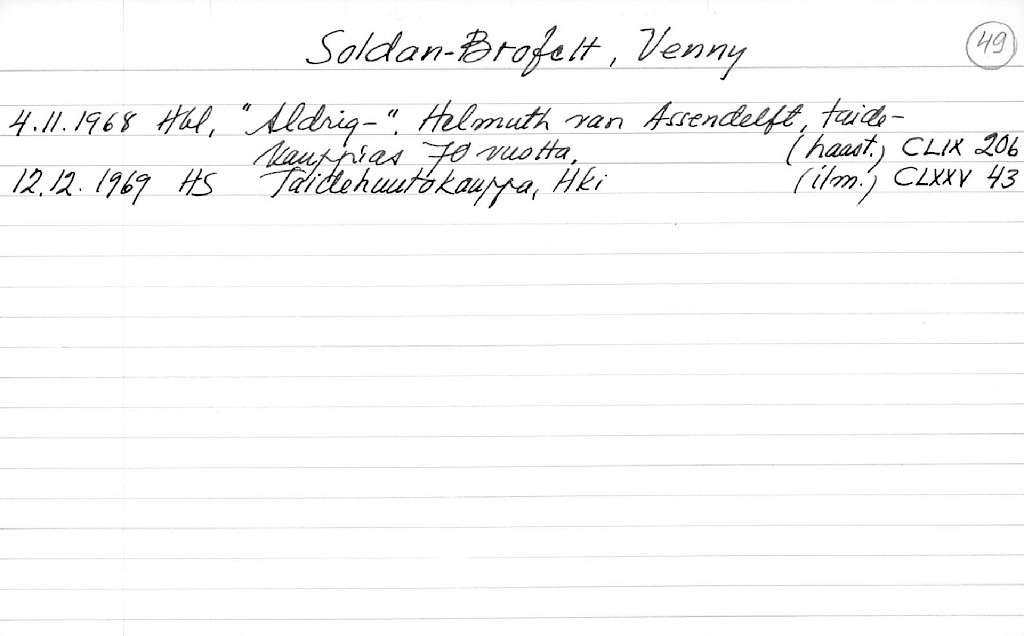 Soldan-Brofelt, Venny 49
4.11.1968 Hbl, "Aldrig-". Helmuth van Assendelft, taide-
kauppias 70 vuotta, (haast.) CLIX 206
12.12.1969 HS Taidehuutokauppa, Hki (ilm.) CLXXV 43